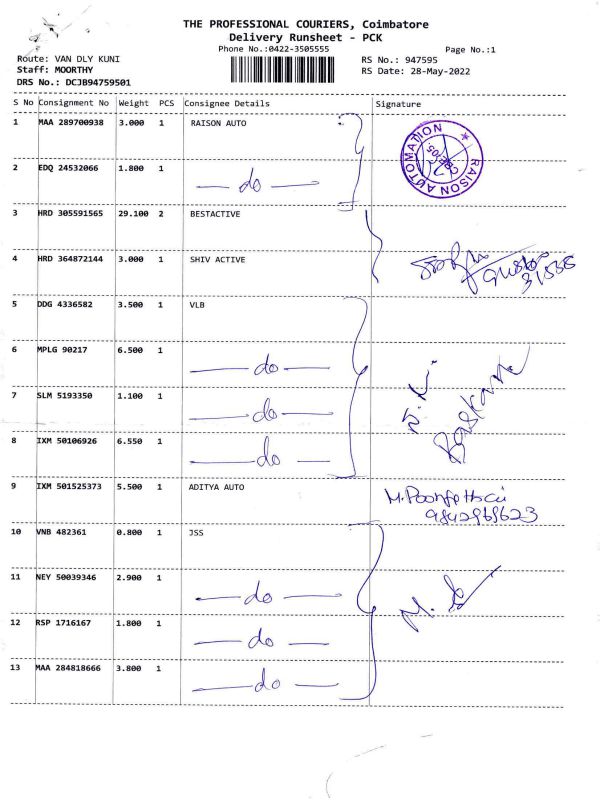 THE PROFESSIONAL COURIERS, Coimbatore
Delivery Runsheet - PCK
Phone No.:0422-3505555
Page No.:1
Route: VAN DLY KUNI
RS No.: 947595
Staff: MOORTHY
RS Date: 28-May-2022
DRS No.: DCJB94759501
S No Consignment No Weight PCS Consignee Details Signature
1 MAA 289700938 3.000 1 RAISON AUTO
RAISON AUTOMATION
CBE-05
2 EDQ 24532066 1.800 1 do
3 HRD 305591565 29.100 2 BESTACTIVE
4 HRD 364872144 3.000 1 SHIV ACTIVE
5 DDG 4336582 3.500 1 VLB
6 MPLG 90217 6.500 1 do
7 SLM 5193350 1.100 1 do
8 IXM 50106926 6.550 1 do
9 IXM 501525373 5.500 1 ADITYA AUTO
10 VNB 482361 0.800 1 JSS
11 NEY 50039346 2.900 1 do
12 RSP 1716167 1.800 1 do
13 MAA 284818666 3.800 1 do